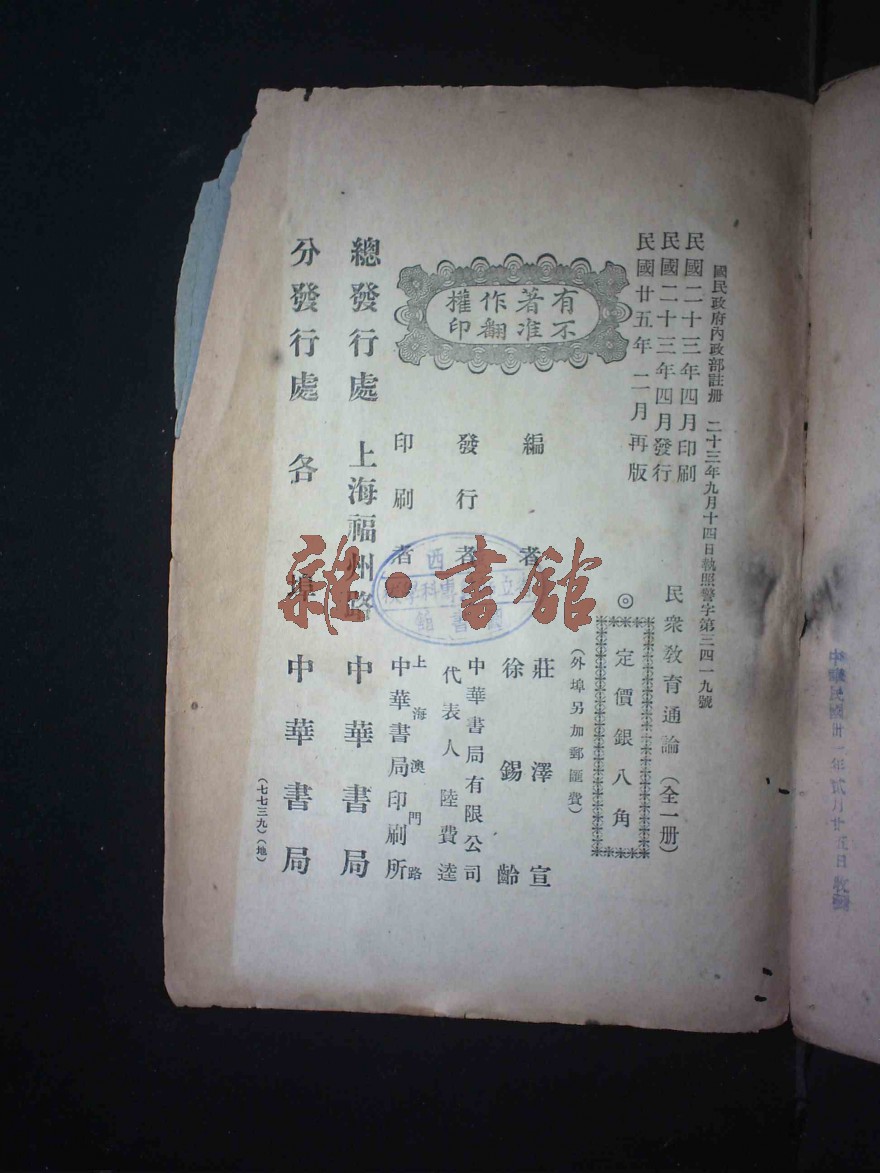 國民政府內政部註册 二十三年九月十四日執照警字第三四一九號
民國二十三年四月印刷
民國二十三年四月發行
民國廿五年二月再版
民衆敎育通論（全一册）
◎
定價銀八角
（外埠另加郵匯費）
有著作權
不准翻印
編者
莊澤宣
徐錫齡
發行者
中華書局有限公司
代表人陸費逵
印刷者
上海澳門路
中華書局印刷所
總發行處 上海福州路 中華書局
分發行處 各埠 中華書局
（七七三九）（地）
雜·書館
中華民國卅一年貳月廿五日